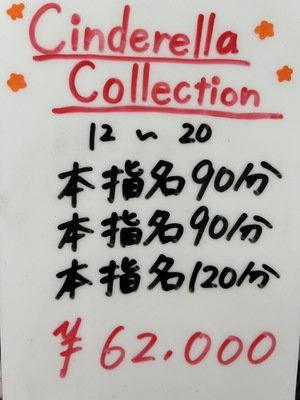 Cinderella
Collection
12 〜 20
本指名90分
本指名90分
本指名120分
¥62.000